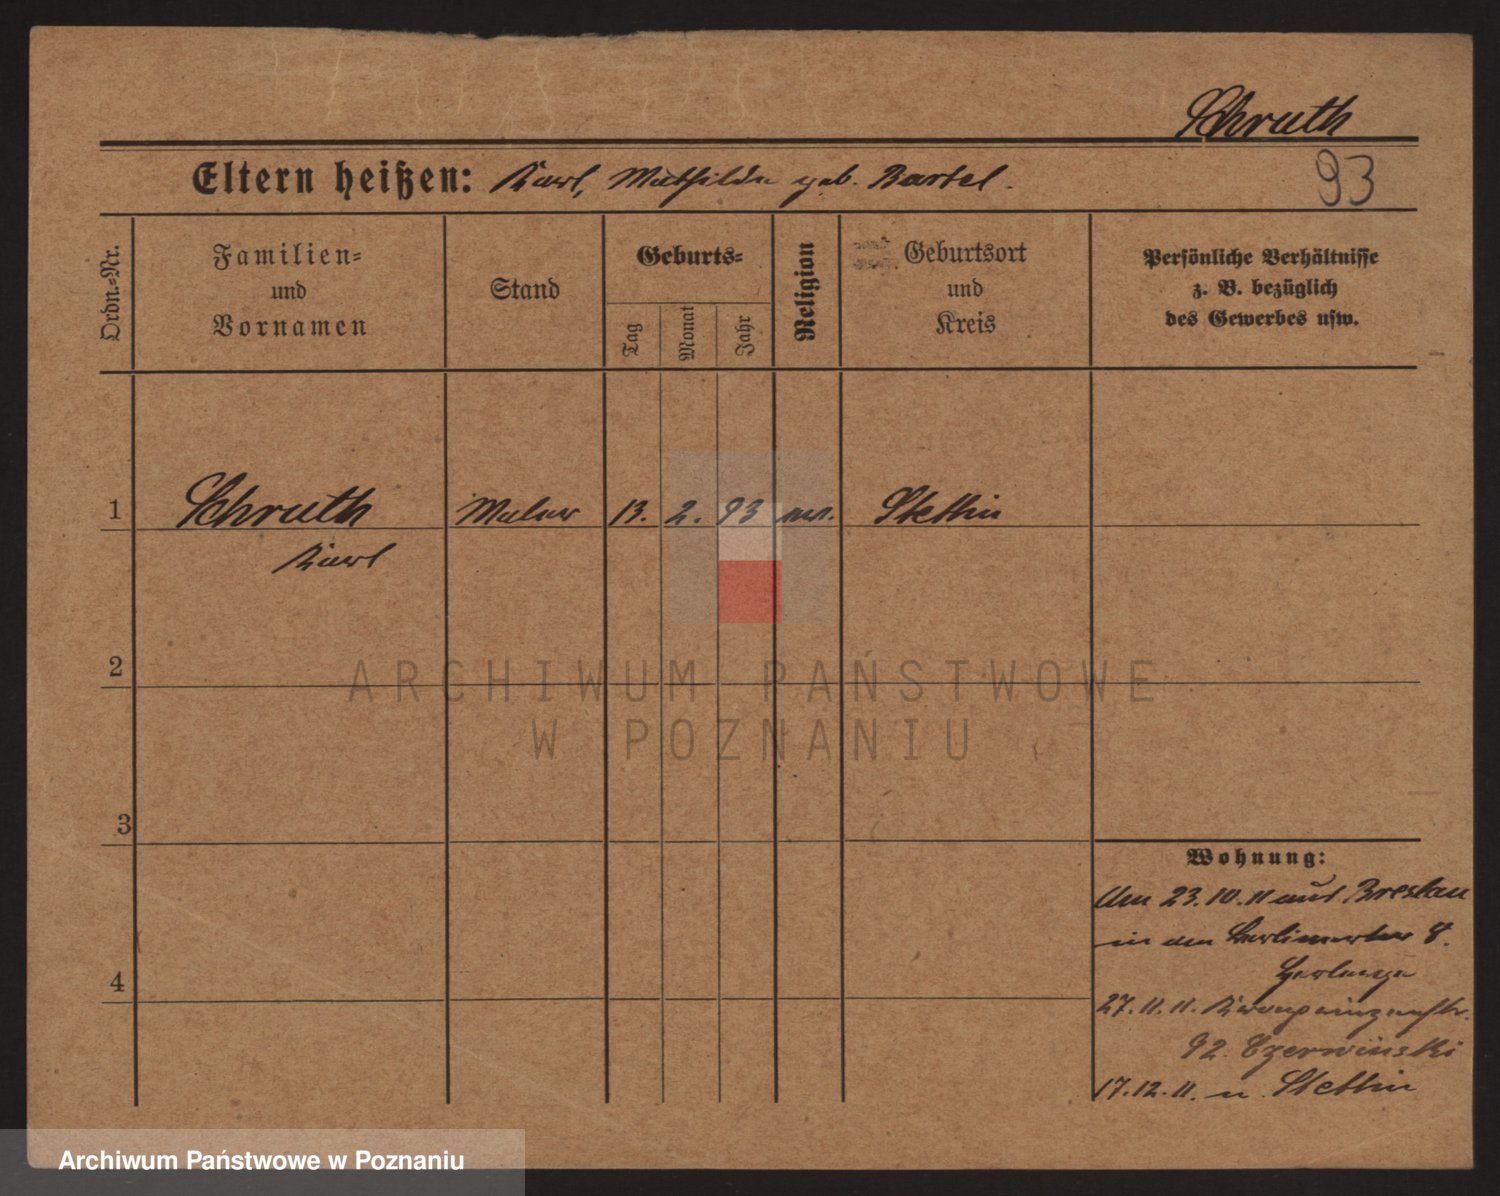 Schruth
93
Eltern heißen: Karl, Mathilde geb. Bartel.
Ordn.-Nr.
Familien-
und
Vornamen
Stand
Geburts-
Tag
Monat
Jahr
Religion
Geburtsort
und
Kreis
Persönliche Verhältnisse
z. B. bezüglich
des Gewerbes usw.
1 Schruth Maler 13. 2. 93 Stettin
Karl
2
3
4
Wohnung:
Am 23.10.11 aus Breslau
in den 8.
27.11.11. Kronprinzenstr.
92. Czerwinski
17.12.11. n. Stettin
ARCHIWUM PAŃSTWOWE
W POZNANIU
Archiwum Państwowe w Poznaniu